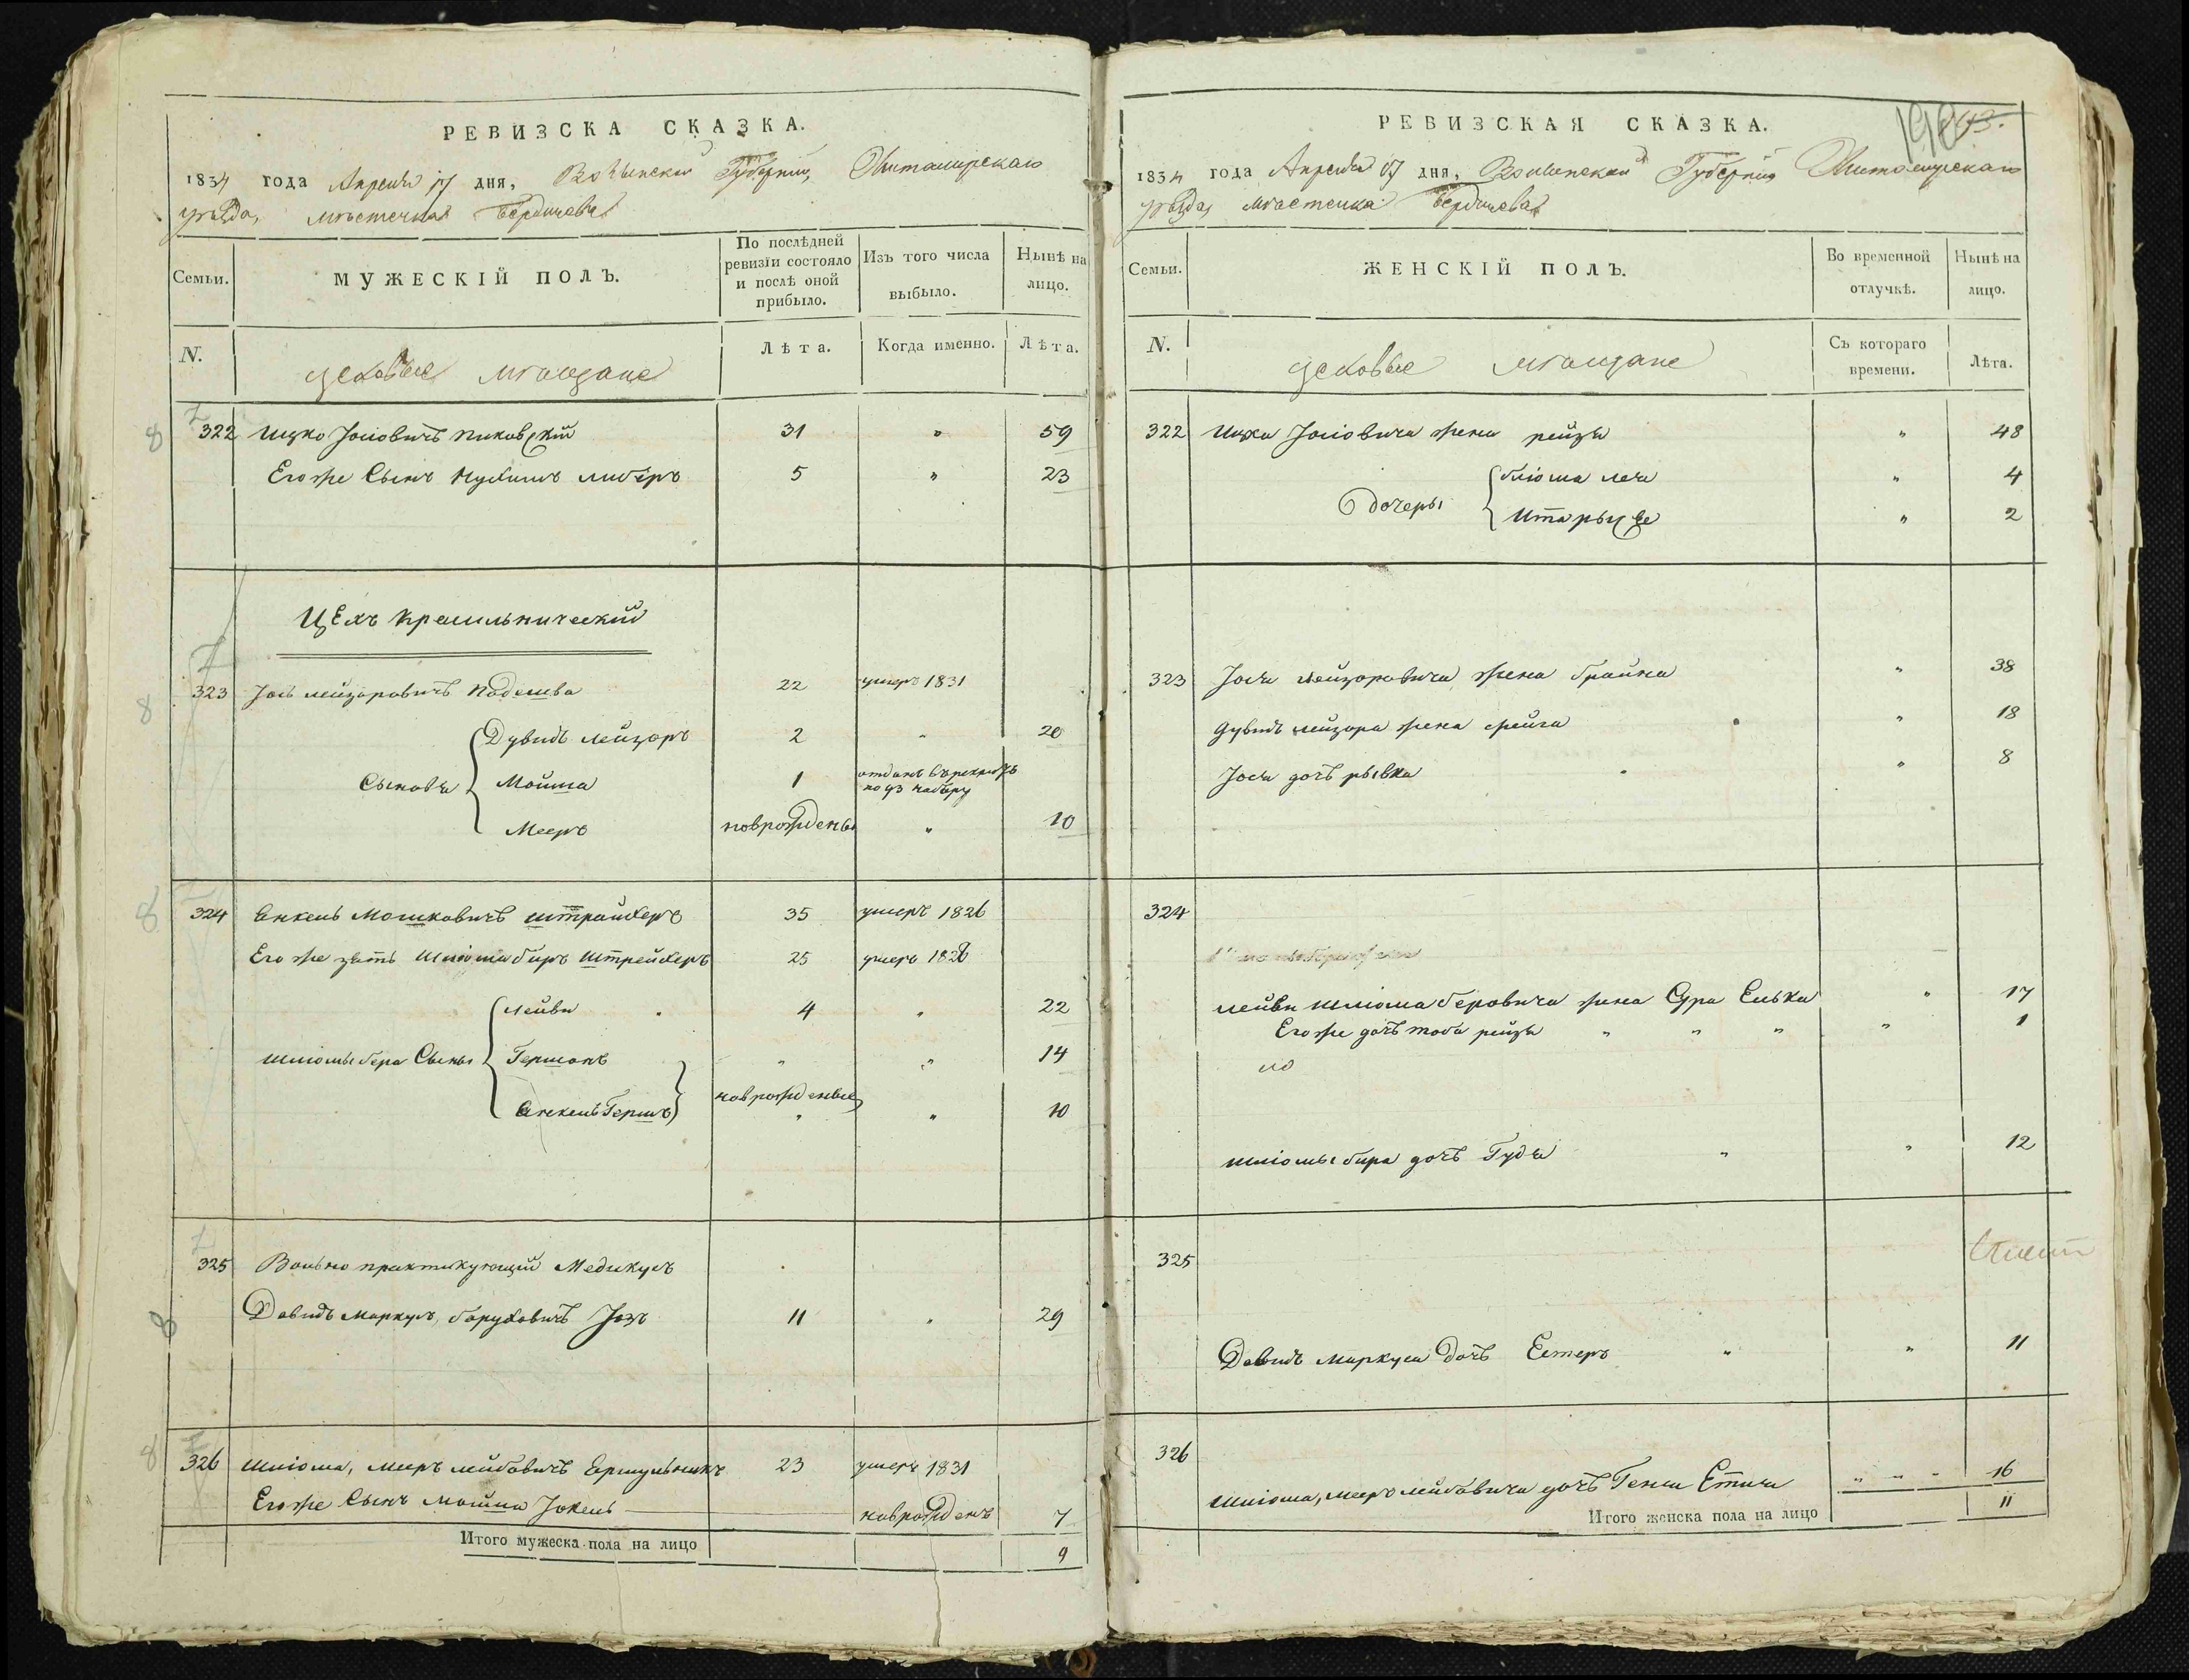 РЕВИЗСКА СКАЗКА.
1834 года Апреля 17 дня, Волынской Губернии, Житомирскаго
уѣзда, мѣстечка Бердичева
Семьи.
МУЖЕСКІЙ ПОЛЪ.
По послѣдней ревизіи состояло и послѣ оной прибыло.
Изъ того числа выбыло.
Нынѣ на лицо.
N.
цеховые мѣщане
Лѣта.
Когда именно.
Лѣта.
322 Ицко Іосіовичъ Пиковскій 31 " 59
Его же Сынъ Нухимъ либеръ 5 " 23
Цехъ Красильническій
323 Іось лейзоровичъ 22 умеръ 1831
Сыновья
Дувидъ лейзоръ 2 " 20
Мошка 1 отданъ въ рекруты
по 93 набору
Мееръ новрожденый " 10
324 Енкель Мошковичъ штрайхеръ 35 умеръ 1826
Его же зять Шліома биръ Штрейхеръ 25 умеръ 1828
Шліомы бера Сыны
лейви 4 " 22
Гершонъ " " 14
Енкель Гершъ новрожденые " 10
325 Вольно практикующій Медикусъ
Давидъ Маркусъ, боруховичъ Іозъ 11 " 29
326 Шліома, мееръ лейбовичъ Ермульникъ 23 умеръ 1831
Его же Сынъ Мошка Іокель новрожденъ 7
Итого мужеска пола на лицо 9
РЕВИЗСКАЯ СКАЗКА.
1834 года Апреля 17 дня, Волынской Губерніи Житомирскаго
уѣзда, мѣстечка Бердичева
Семьи.
ЖЕНСКІЙ ПОЛЪ.
Во временной отлучкѣ.
Нынѣ на лицо.
N.
цеховые мѣщане
Съ котораго времени.
Лѣта.
322 Ицка Іосіовича жена рейзя " 48
Дочеры
бліома лея " 4
Ита рыфе " 2
323 Іося лейзоровича жена брайна " 38
Дувидъ лейзора жена фейга " 18
Іося дочъ рывка " 8
324
лейви шліома беровича жена Сура Елька " 17
Его же дочъ тоба рейзя " " " " 1
шліомы бира дочъ Гудя " " 12
325
Давидъ Маркуса Дочъ Естеръ " " 11
326
Шліома, мееръ лейбовича дочъ Геня Етля " " " 16
Итого женска пола на лицо 11